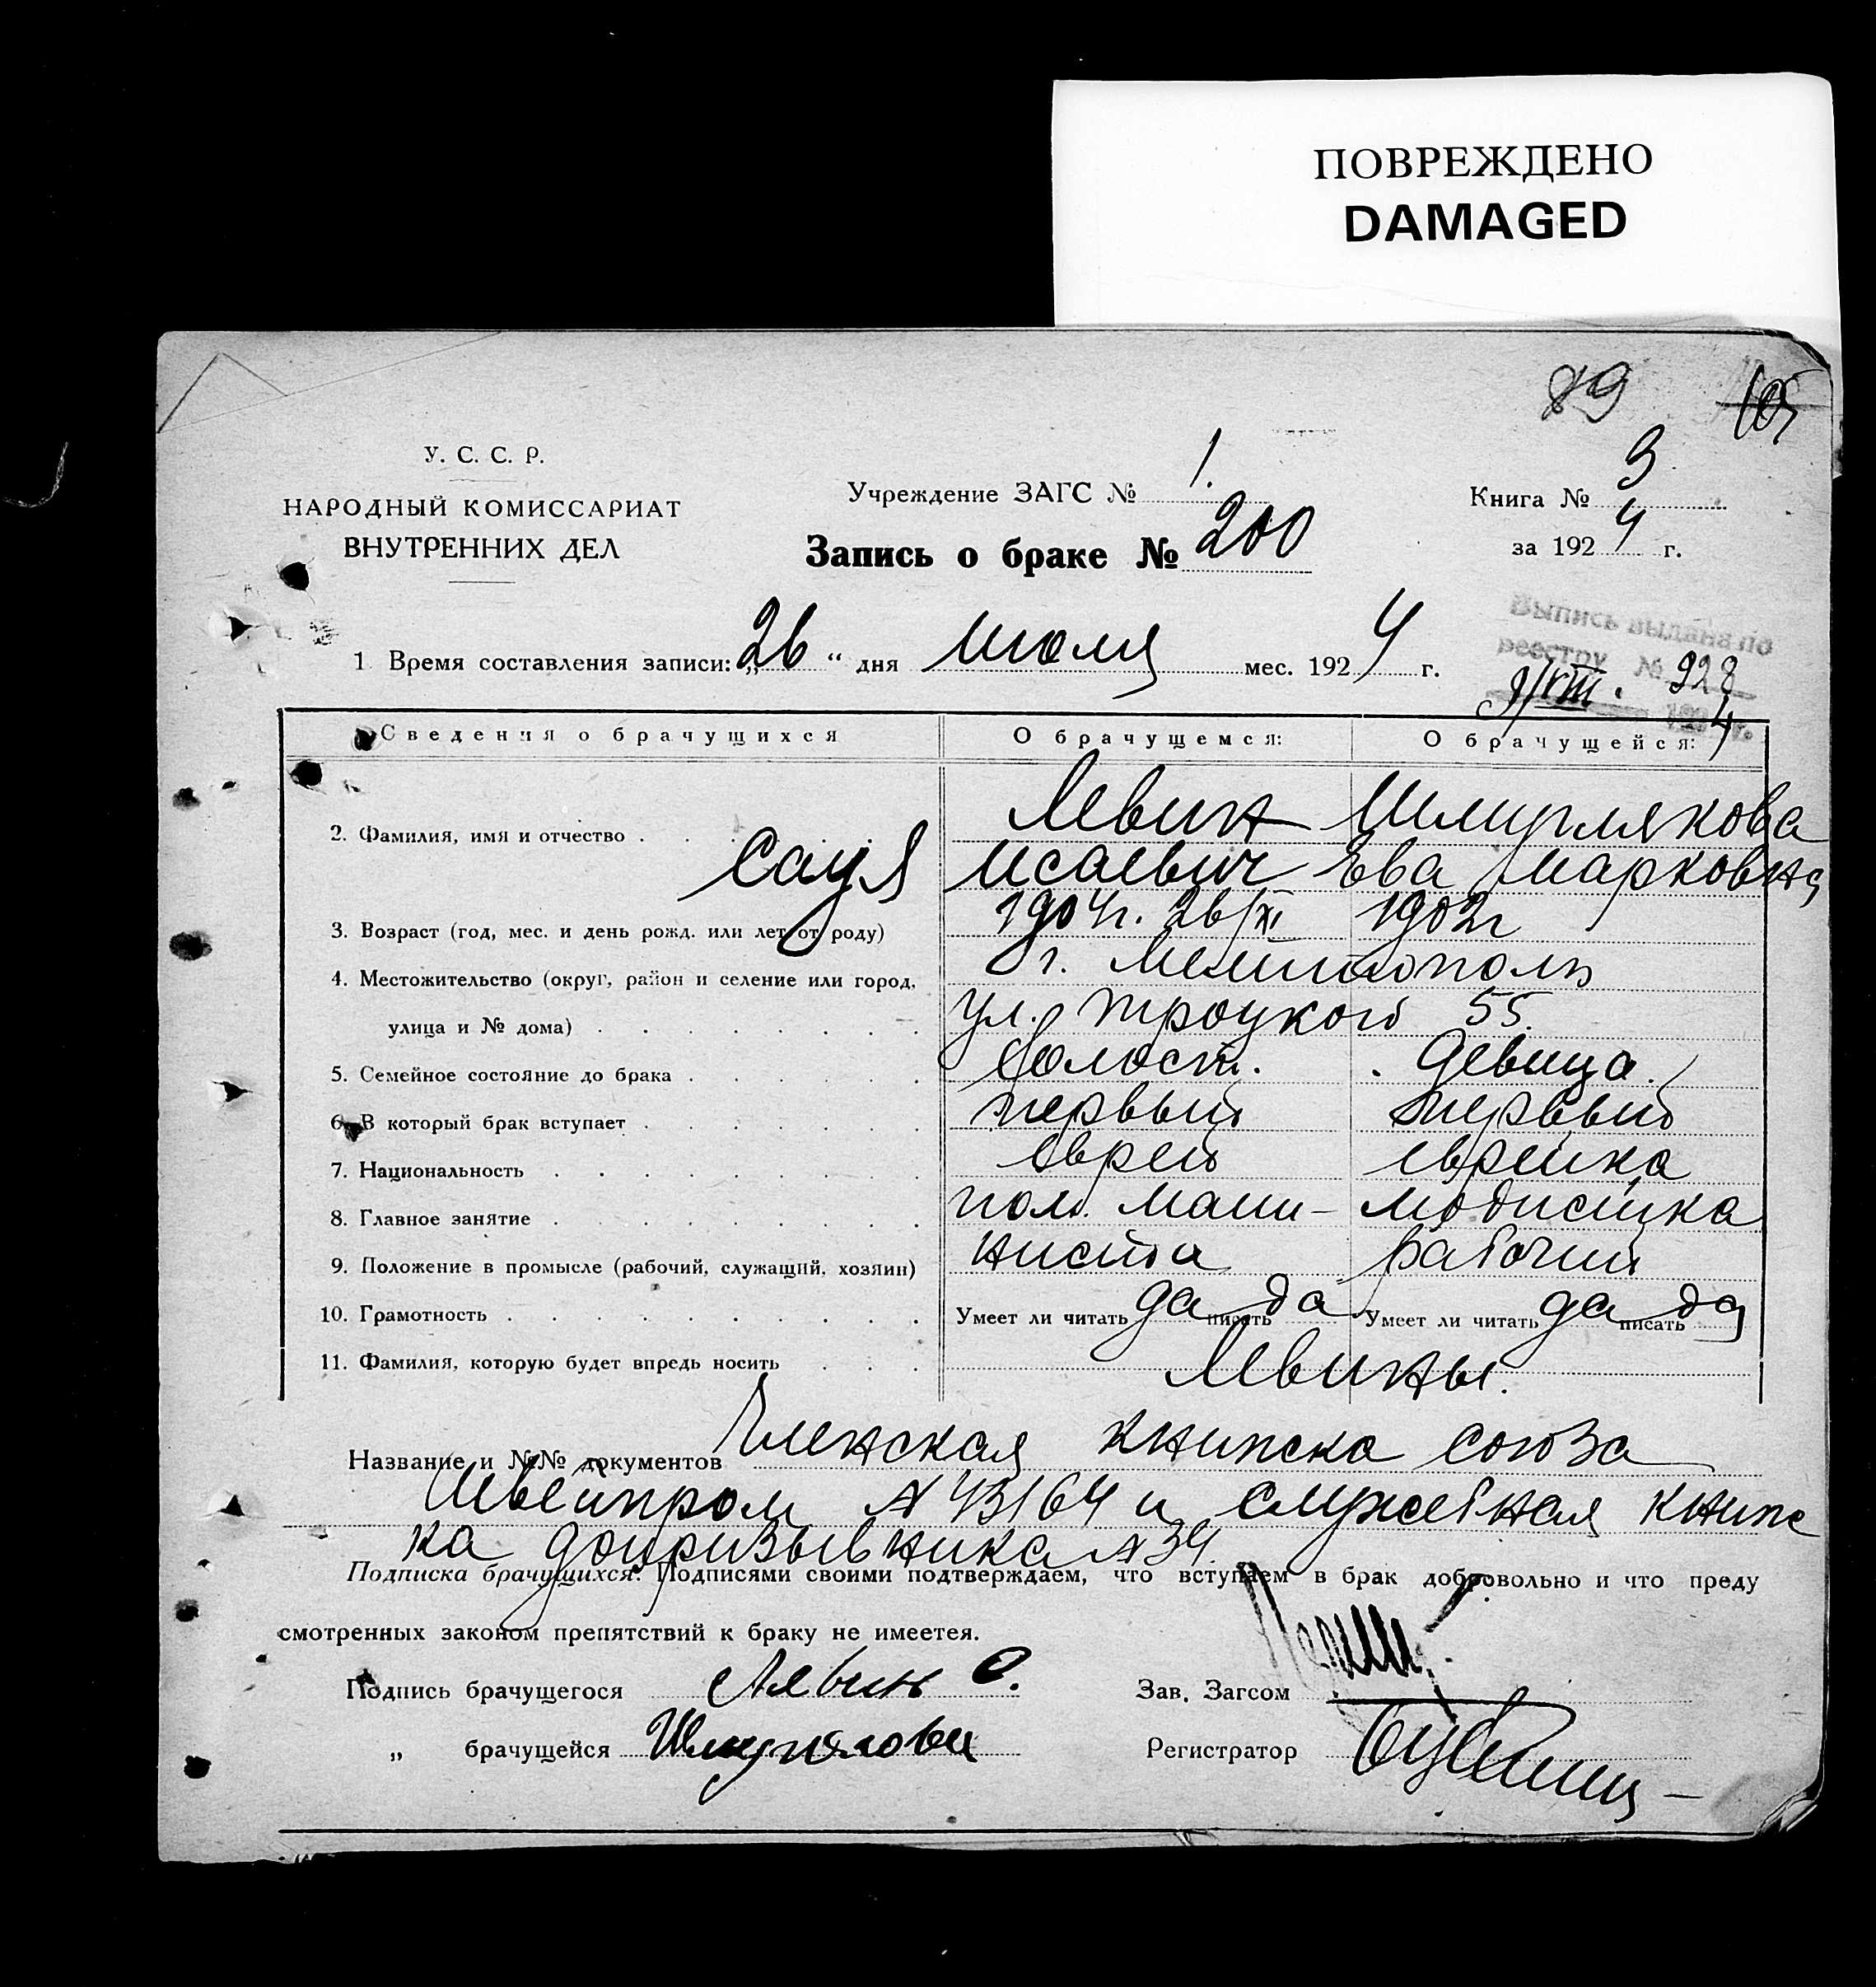 ПОВРЕЖДЕНО
DAMAGED
89 105
У. С. С. Р.
НАРОДНЫЙ КОМИССАРИАТ
ВНУТРЕННИХ ДЕЛ
Учреждение ЗАГС № 1.
Запись о браке № 200
Книга № 3
за 1924 г.
Выпись выдана по
реестру № 928
9/VIII. 1924 г.
1 Время составления записи: „26“ дня июля мес. 1924 г.
Сведения о брачущихся О брачущемся: О брачущейся:
2. Фамилия, имя и отчество Левин Шмуклякова
Саул Исаевич Ева Марковна
3. Возраст (год, мес. и день рожд. или лет от роду) 1904г. 26/XI 1902г
4. Местожительство (округ, район и селение или город, г. Мелитополь
улица и № дома) ул. Троцкого 55.
5. Семейное состояние до брака холост. девица
6. В который брак вступает первый первый
7. Национальность еврей еврейка
8. Главное занятие пом. маши- модистка
9. Положение в промысле (рабочий, служащий, хозяин) ниста рабочий
10. Грамотность Умеет ли читать да писать да Умеет ли читать да писать да
11. Фамилия, которую будет впредь носить Левины.
Название и №№ документов Членская книжка союза
Швейпром № 43164 и служебная книж
ка допризывника № 34.
Подписка брачущихся: Подписями своими подтверждаем, что вступаем в брак добровольно и что преду
смотренных законом препятствий к браку не имеетея.
Подпись брачущегося Левин С. Зав. Загсом
„ брачущейся Регистратор